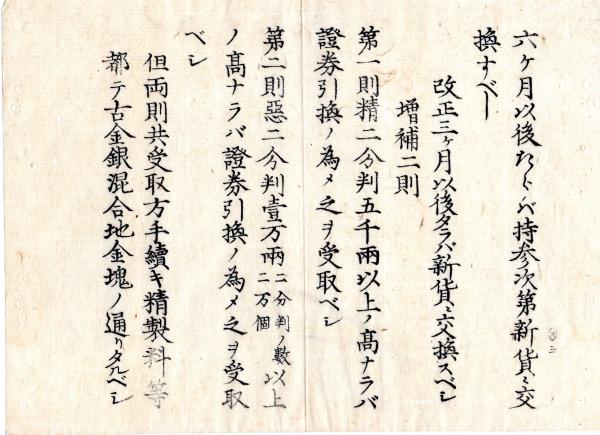 六ケ月以後たらバ持参次第新貨ニ交
換すべし
改正三ヶ月以後ナラバ新貨ニ交換スベシ
増補二則
第一則精二分判五千兩以上ノ髙ナラバ
證券引換ノ為メ之ヲ受取ベシ
第二則惡二分判壹万兩二分判ノ數二万個以上
ノ髙ナラバ證券引換ノ為メ之ヲ受取
ベシ
但両則共受取方手續キ精製料等
都テ古金銀混合地金塊ノ通リタルベシ